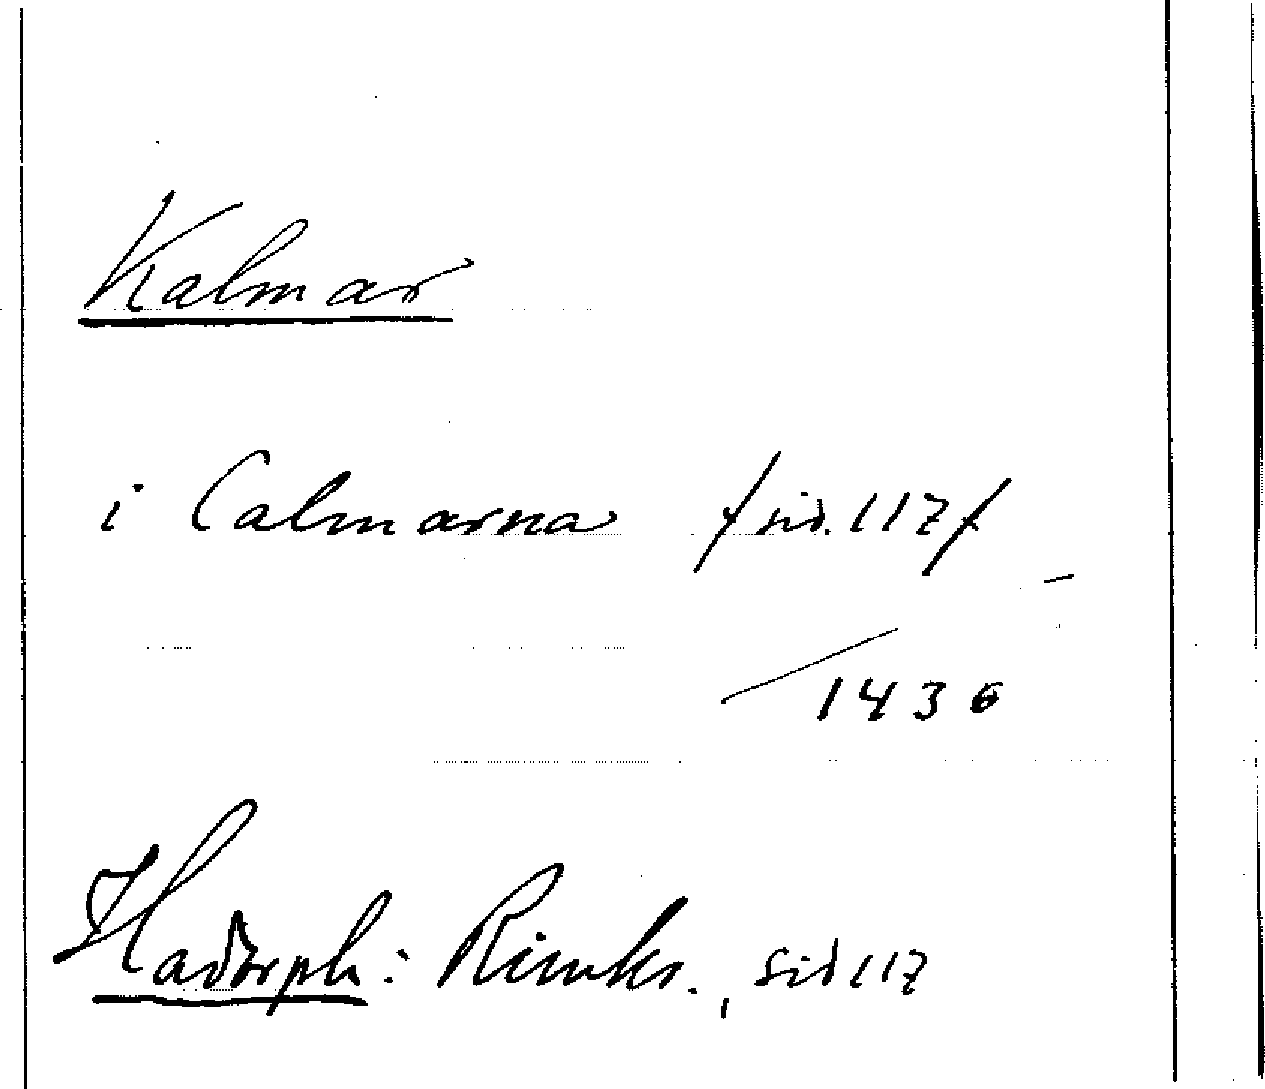 Kalmar
i Calmarna /sid. 117/
1436
Hadorph: Rimkr., sid 117